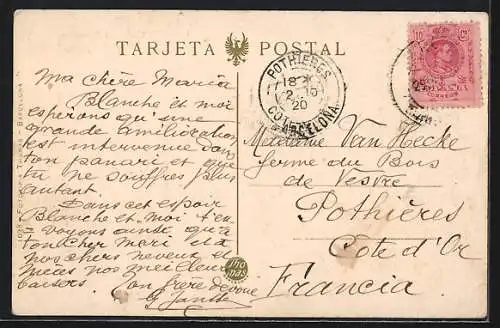 TARJETA POSTAL
Ma chère Maria
Blanche et moi
esperons qu'une
grande amélioration
est intervenue dans
ton panari et que
tu ne souffres plus
autant.
Dans cet espoir
Blanche et moi t'en-
voyons ainsi qu'à
ton cher mari et à
nos chers neveux et
nièces nos meilleurs
baisers.
Ton frère dévoué
Thomas
POTHIERES
18
20
COTE D'OR
BARCELONA
10 Cs 10
ESPAÑA
Madame Van Hecke
ferme du Bois
de Vesvre
Pothières
Cote d'Or
Francia
BARCELONA